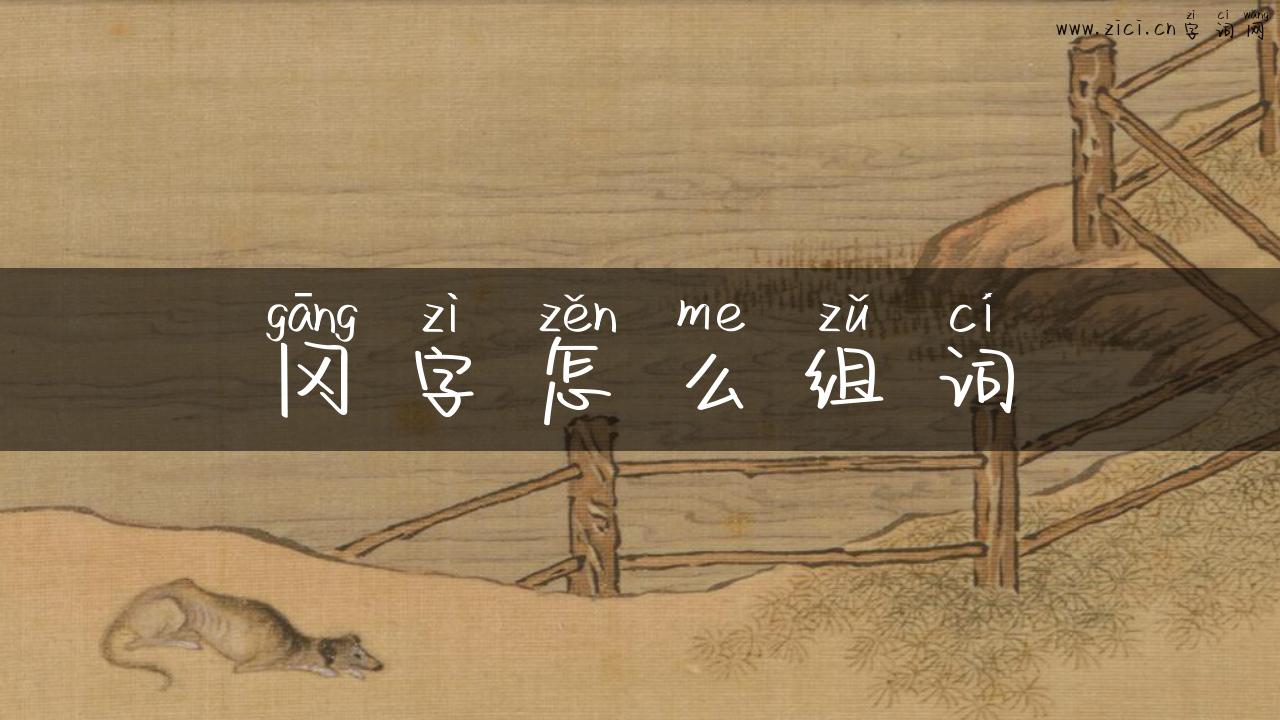 zì cí wǎng
www.zici.cn字词网
gāng zì zěn me zǔ cí
冈字怎么组词